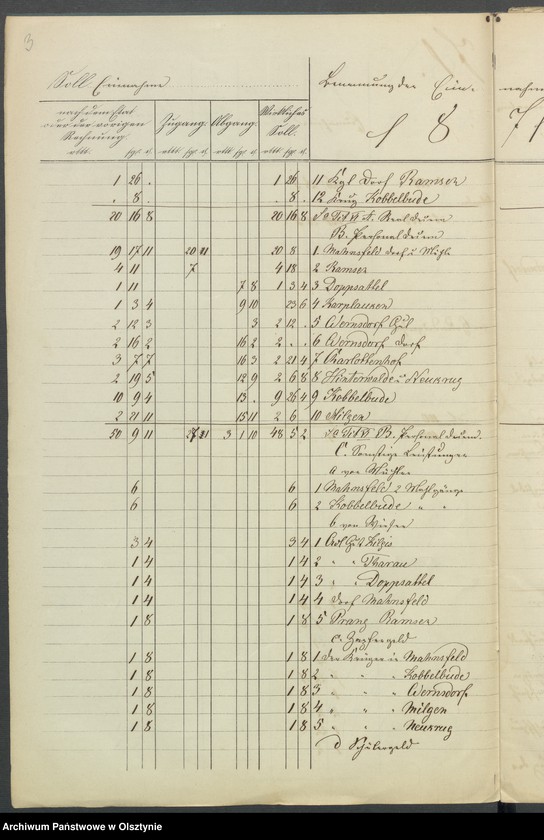 3
Soll Einnahme
Benennung der Ein-
nahme
nach dem Etat
oder der vorigen
Rechnung
Zugang
Abgang
Wirkliches
Soll
rtlr. sgr. d.
rtlr. sgr. d.
rtlr. sgr. d.
rtlr. sgr. d.
1 26 . 1 26 . 11 Kgl Dorf Ramsen
. 8 . . 8 . 12 Krug Kobbelbude
20 16 8 20 16 8 Sa Tit VI A. Real
B. Personal
19 17 11 20 21 20 8 1. Mahnsfeld Dorf u Mühle
4 11 7 4 18 2 Ramsen
1 11 7 8 1 3 4 3 Doppsattel
1 3 4 9 10 23 6 4 Karplauken
2 12 3 3 2 12 . 5 Wernsdorf Gut
2 16 2 16 2 2 . . 6 Wernsdorf Dorf
3 7 7 16 3 2 21 4 7 Charlottenhof
2 19 5 12 9 2 6 8 8 Hinterwalde u Neukrug
10 9 4 13 . 9 26 4 9 Kobbelbude
2 21 11 15 11 2 6 10 Milgen
50 9 11 27 21 3 1 10 48 5 2 Sa Tit VI B. Personal
C. Sonstige Leistungen
a von Mühlen
6 6 1 Mahnsfeld 2 Mahlgänge
6 6 2 Kobbelbude " "
b von Wiesen
3 4 3 4 1 Adl Gut
1 4 1 4 2 " " Tharau
1 4 1 4 3 " " Doppsattel
1 4 1 4 4 Dorf Mahnsfeld
1 8 1 8 5 Ramsen
c. Zapfengeld
1 8 1 8 1 der Krüger in Mahnsfeld
1 8 1 8 2 " " " Kobbelbude
1 8 1 8 3 " " " Wernsdorf
1 8 1 8 4 " " " Milgen
1 8 1 8 5 " " " Neukrug
d Schülergeld
Archiwum Państwowe w Olsztynie